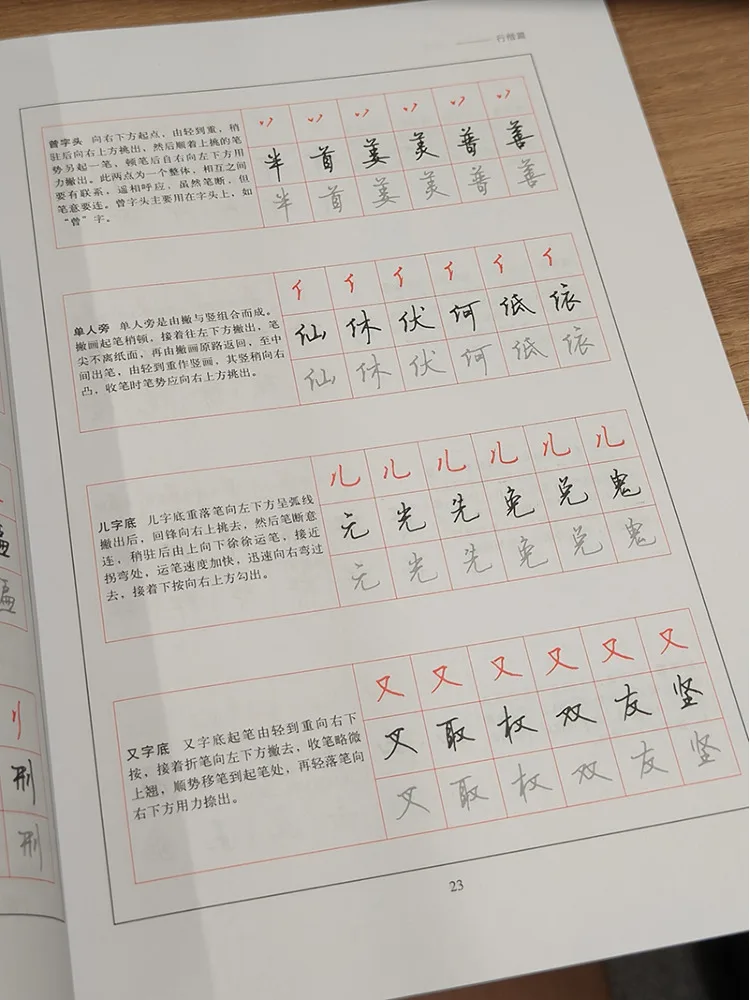 行楷篇
曾字头 向右下方起点，由轻到重，稍
驻后向右上方挑出，然后顺着上挑的笔
势另起一笔，顿笔后自右向左下方用
力撇出。此两点为一个整体，相互之间
要有联系，遥相呼应，虽然笔断，但
笔意要连。曾字头主要用在字头上，如
“曾”字。
丷 丷 丷 丷 丷 丷
半 首 姜 美 普 善
半 首 姜 美 普 善
单人旁 单人旁是由撇与竖组合而成。
撇画起笔稍顿，接着往左下方撇出，笔
尖不离纸面，再由撇画原路返回，至中
间出笔，由轻到重作竖画，其竖稍向右
凸，收笔时笔势应向右上方挑出。
亻 亻 亻 亻 亻 亻
仙 休 伏 何 低 依
仙 休 伏 何 低 依
儿字底 儿字底重落笔向左下方呈弧线
撇出后，回锋向右上挑去，然后笔断意
连，稍驻后由上向下徐徐运笔，接近
拐弯处，运笔速度加快，迅速向右弯过
去，接着下按向右上方勾出。
儿 儿 儿 儿 儿 儿
元 光 先 免 兑 鬼
元 光 先 免 兑 鬼
又字底 又字底起笔由轻到重向右下
按，接着折笔向左下方撇去，收笔略微
上翘，顺势移笔到起笔处，再轻落笔向
右下方用力捺出。
又 又 又 又 又 又
又 取 权 双 友 坚
又 取 权 双 友 坚
刂
刑
刑
23